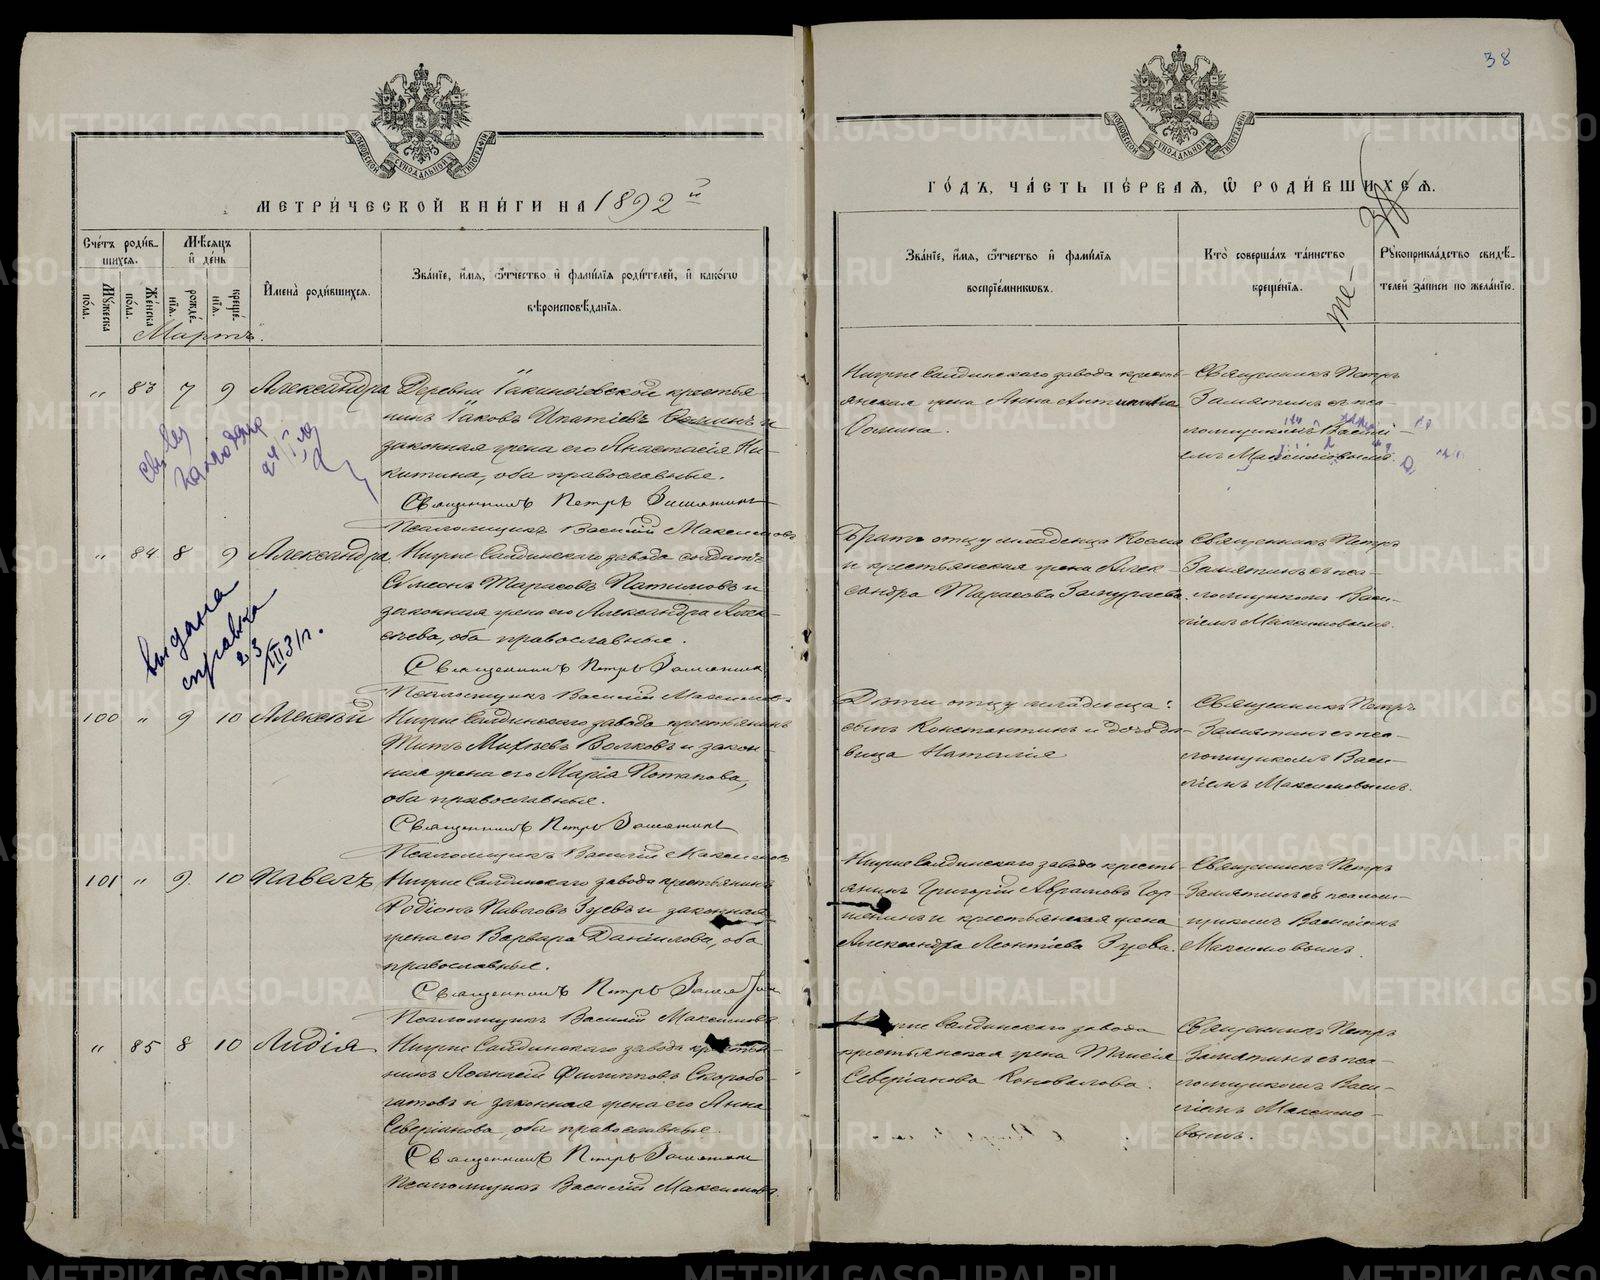 38
МЕТРИ́ЧЕСКОЙ КНИ́ГИ НА 1892 й
ГО́ДЪ, ЧА́СТЬ ПЕ́РВАЯ, Ѿ РОДИ́ВШИХСЯ.
Сче́тъ роди́в-
шихся.
Мꙋжеска по́ла.
Же́нска по́ла.
Мѣ́сяцъ
и҆ де́нь
рожде́нїя.
креще́нїя.
И҆мена̀ роди́вшихся.
Зва́нїе, и҆́мя, ѻ҆́тчество и҆ фами́лїя роди́телей, и҆ како́гѡ
вѣроисповѣ́данїя.
Зва́нїе, и҆́мя, ѻ҆́тчество и҆ фами́лїя
воспрїе́мникѡвъ.
Кто̀ соверша́лъ та́инство
креще́нїя.
Рꙋкоприкла́дство свидѣ́-
телей за́писи по жела́нїю.
Мартъ.
" 83 7 9 Александра
Деревни Іакинѳіевской крестья-
нинъ Іаковъ Ипатіевъ и
законная жена его Анастасія Ни-
китина, оба православные.
Священникъ Петръ Замятинъ
Псаломщикъ Василій Максимовъ
Нижне Салдинскаго завода кресть-
янская жена Анна
Ѳомина.
Священникъ Петръ
Замятинъ съ пса-
ломщикомъ Васи-
емъ Максимовымъ.
" 84 8 9 Александра
Нижне Салдинскаго завода солдатъ
Симеонъ Тарасовъ Патимовъ и
законная жена его Александра Алек-
сѣева, оба православные.
Священникъ Петръ Замятинъ
Псаломщикъ Василій Максимовъ
выдана
справка
23/III 31 г.
Братъ отцу младенца Косма
и крестьянская жена Алек-
сандра Тарасова Зажураева.
Священникъ Петръ
Замятинъ съ пса-
ломщикомъ Васи-
ліемъ Максимовымъ.
100 " 9 10 Алексѣй
Нижне Салдинскаго завода крестьянинъ
Титъ Михѣевъ Волковъ и закон-
ная жена его Марія Потапова,
оба православные.
Священникъ Петръ Замятинъ
Псаломщикъ Василій Максимовъ
Дѣти отцу младенца:
сынъ Константинъ и дочь дѣ-
вица Наталія
Священникъ Петръ
Замятинъ съ пса-
ломщикомъ Васи-
ліемъ Максимовымъ.
101 " 9. 10 Павелъ
Нижне Салдинскаго завода крестьянинъ
Родіонъ Павловъ Зуевъ и законная
жена его Варвара Даніилова, оба
православные.
Священникъ Петръ Замятинъ
Псаломщикъ Василій Максимовъ
Нижне Салдинскаго завода кресть-
янинъ Григорій Аврамовъ Гор-
и крестьянская жена
Александра Леонтіева Зуева.
Священникъ Петръ
Замятинъ съ псалом-
щикомъ Василіемъ
Максимовымъ.
" 85 8 10 Лидія
Нижне Салдинскаго завода крестья-
нинъ Аѳанасій Филипповъ Скоробо-
гатовъ и законная жена его Анна
Северіанова, оба православные.
Священникъ Петръ Замятинъ
Псаломщикъ Василій Максимовъ
Нижне Салдинскаго завода
крестьянская жена Таисія
Северіанова Коновалова.
Священникъ Петръ
Замятинъ съ пса-
ломщикомъ Васи-
ліемъ Максимо-
вымъ.
METRIKI.GASO-URAL.RU